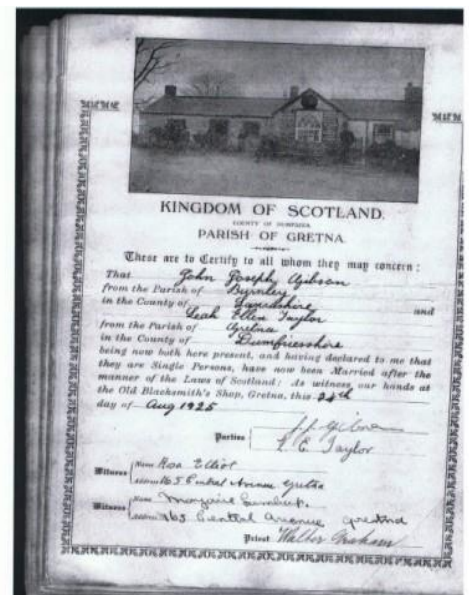 KINGDOM OF SCOTLAND.
COUNTY OF DUMFRIES
PARISH OF GRETNA.
These are to Certify to all whom they may concern:
That John Joseph Gibson
from the Parish of Burnley
in the County of and
Leah Ellen Taylor
from the Parish of Gretna
in the County of Dumfriesshire
being now both here present, and having declared to me that
they are Single Persons, have now been Married after the
manner of the Laws of Scotland: As witness our hands at
the Old Blacksmith's Shop, Gretna, this 24th
day of Aug 1925
Parties J. J. Gibson
L. E. Taylor
Witness Name Rosa Elliot
Address 165 Central Avenue Gretna
Witness Name
Address 165 Central Avenue Gretna
Priest Walter Graham